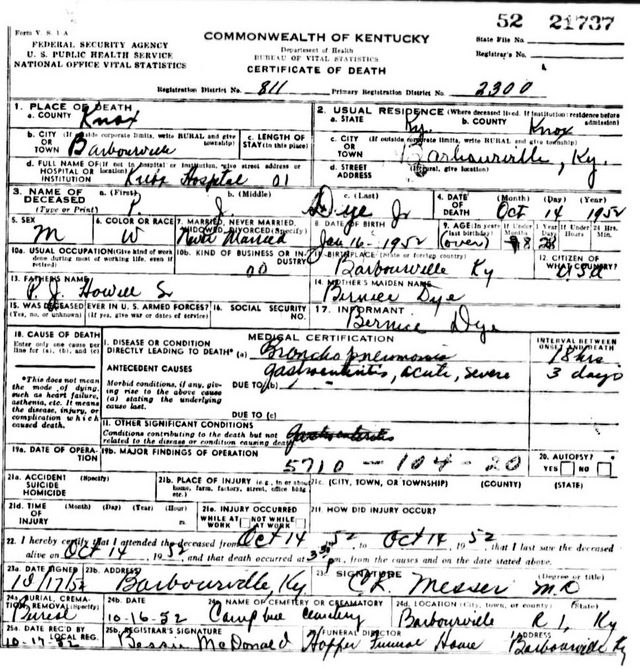 52 21737
Form V. S. 1 A
FEDERAL SECURITY AGENCY
U. S. PUBLIC HEALTH SERVICE
NATIONAL OFFICE VITAL STATISTICS
COMMONWEALTH OF KENTUCKY
Department of Health
BUREAU OF VITAL STATISTICS
CERTIFICATE OF DEATH
State File No.
Registrar's No.
Registration District No. 811 Primary Registration District No. 2300
1. PLACE OF DEATH
a. COUNTY Knox
2. USUAL RESIDENCE (Where deceased lived. If institution: residence before admission)
a. STATE Ky. b. COUNTY Knox
b. CITY (If outside corporate limits, write RURAL and give township) OR TOWN Barbourville
c. LENGTH OF STAY (in this place)
c. CITY (If outside corporate limits, write RURAL and give township) OR TOWN Barbourville, Ky.
d. FULL NAME OF (If not in hospital or institution, give street address or location) HOSPITAL OR INSTITUTION Knox Hospital 01
d. STREET ADDRESS (If rural, give location)
3. NAME OF DECEASED (Type or Print)
a. (First) P b. (Middle) J c. (Last) Dye Jr
4. DATE OF DEATH (Month) (Day) (Year) Oct 14 1952
5. SEX M
6. COLOR OR RACE W
7. MARRIED, NEVER MARRIED, WIDOWED, DIVORCED (Specify) Never Married
8. DATE OF BIRTH Jan 16 - 1952
9. AGE (In years last birthday) (over) If Under 1 Year Months 8 Days 28 If Under 24 Hrs. Hours Min.
10a. USUAL OCCUPATION (Give kind of work done during most of working life, even if retired)
10b. KIND OF BUSINESS OR INDUSTRY 00
11. BIRTHPLACE (State or foreign country) Barbourville Ky
12. CITIZEN OF WHAT COUNTRY? USA
13. FATHER'S NAME P. J. Howell Sr
14. MOTHER'S MAIDEN NAME Bernice Dye
15. WAS DECEASED EVER IN U. S. ARMED FORCES? (Yes, no, or unknown) (If yes, give war or dates of service)
16. SOCIAL SECURITY NO.
17. INFORMANT Bernice Dye
18. CAUSE OF DEATH
Enter only one cause per line for (a), (b), and (c)
MEDICAL CERTIFICATION
INTERVAL BETWEEN ONSET AND DEATH
I. DISEASE OR CONDITION DIRECTLY LEADING TO DEATH* (a) Bronchopneumonia 18 hrs.
ANTECEDENT CAUSES Gastroenteritis, acute, severe 3 days
Morbid conditions, if any, giving rise to the above cause (a) stating the underlying cause last.
DUE TO (b)
DUE TO (c)
*This does not mean the mode of dying, such as heart failure, asthenia, etc. It means the disease, injury, or complication which caused death.
II. OTHER SIGNIFICANT CONDITIONS
Conditions contributing to the death but not related to the disease or condition causing death Gastroenteritis
19a. DATE OF OPERATION
19b. MAJOR FINDINGS OF OPERATION
5710 - 104 - 20
20. AUTOPSY?
YES NO
21a. ACCIDENT SUICIDE HOMICIDE (Specify)
21b. PLACE OF INJURY (e.g., in or about home, farm, factory, street, office bldg etc.)
21c. (CITY, TOWN, OR TOWNSHIP) (COUNTY) (STATE)
21d. TIME OF INJURY (Month) (Day) (Year) (Hour)
21e. INJURY OCCURRED
WHILE AT WORK NOT WHILE AT WORK
21f. HOW DID INJURY OCCUR?
22. I hereby certify that I attended the deceased from Oct 14 , 1952 to Oct 14 , 1952, that I last saw the deceased
alive on Oct 14 , 1952, and that death occurred at 3:30 p m, from the causes and on the date stated above.
23a. DATE SIGNED 10/17/52
23b. ADDRESS Barbourville, Ky
23c. SIGNATURE (Degree or title) C.R. Messer M.D
24a. BURIAL, CREMATION, REMOVAL (Specify) Burial
24b. DATE 10-16-52
24c. NAME OF CEMETERY OR CREMATORY Camp bue Cemetery
24d. LOCATION (City, town, or county) (State) Barbourville R 1, Ky
25a. DATE REC'D BY LOCAL REG. 10-17-52
25b. REGISTRAR'S SIGNATURE Bessie McDonald
FUNERAL DIRECTOR Hopper Funeral Home
ADDRESS Barbourville Ky